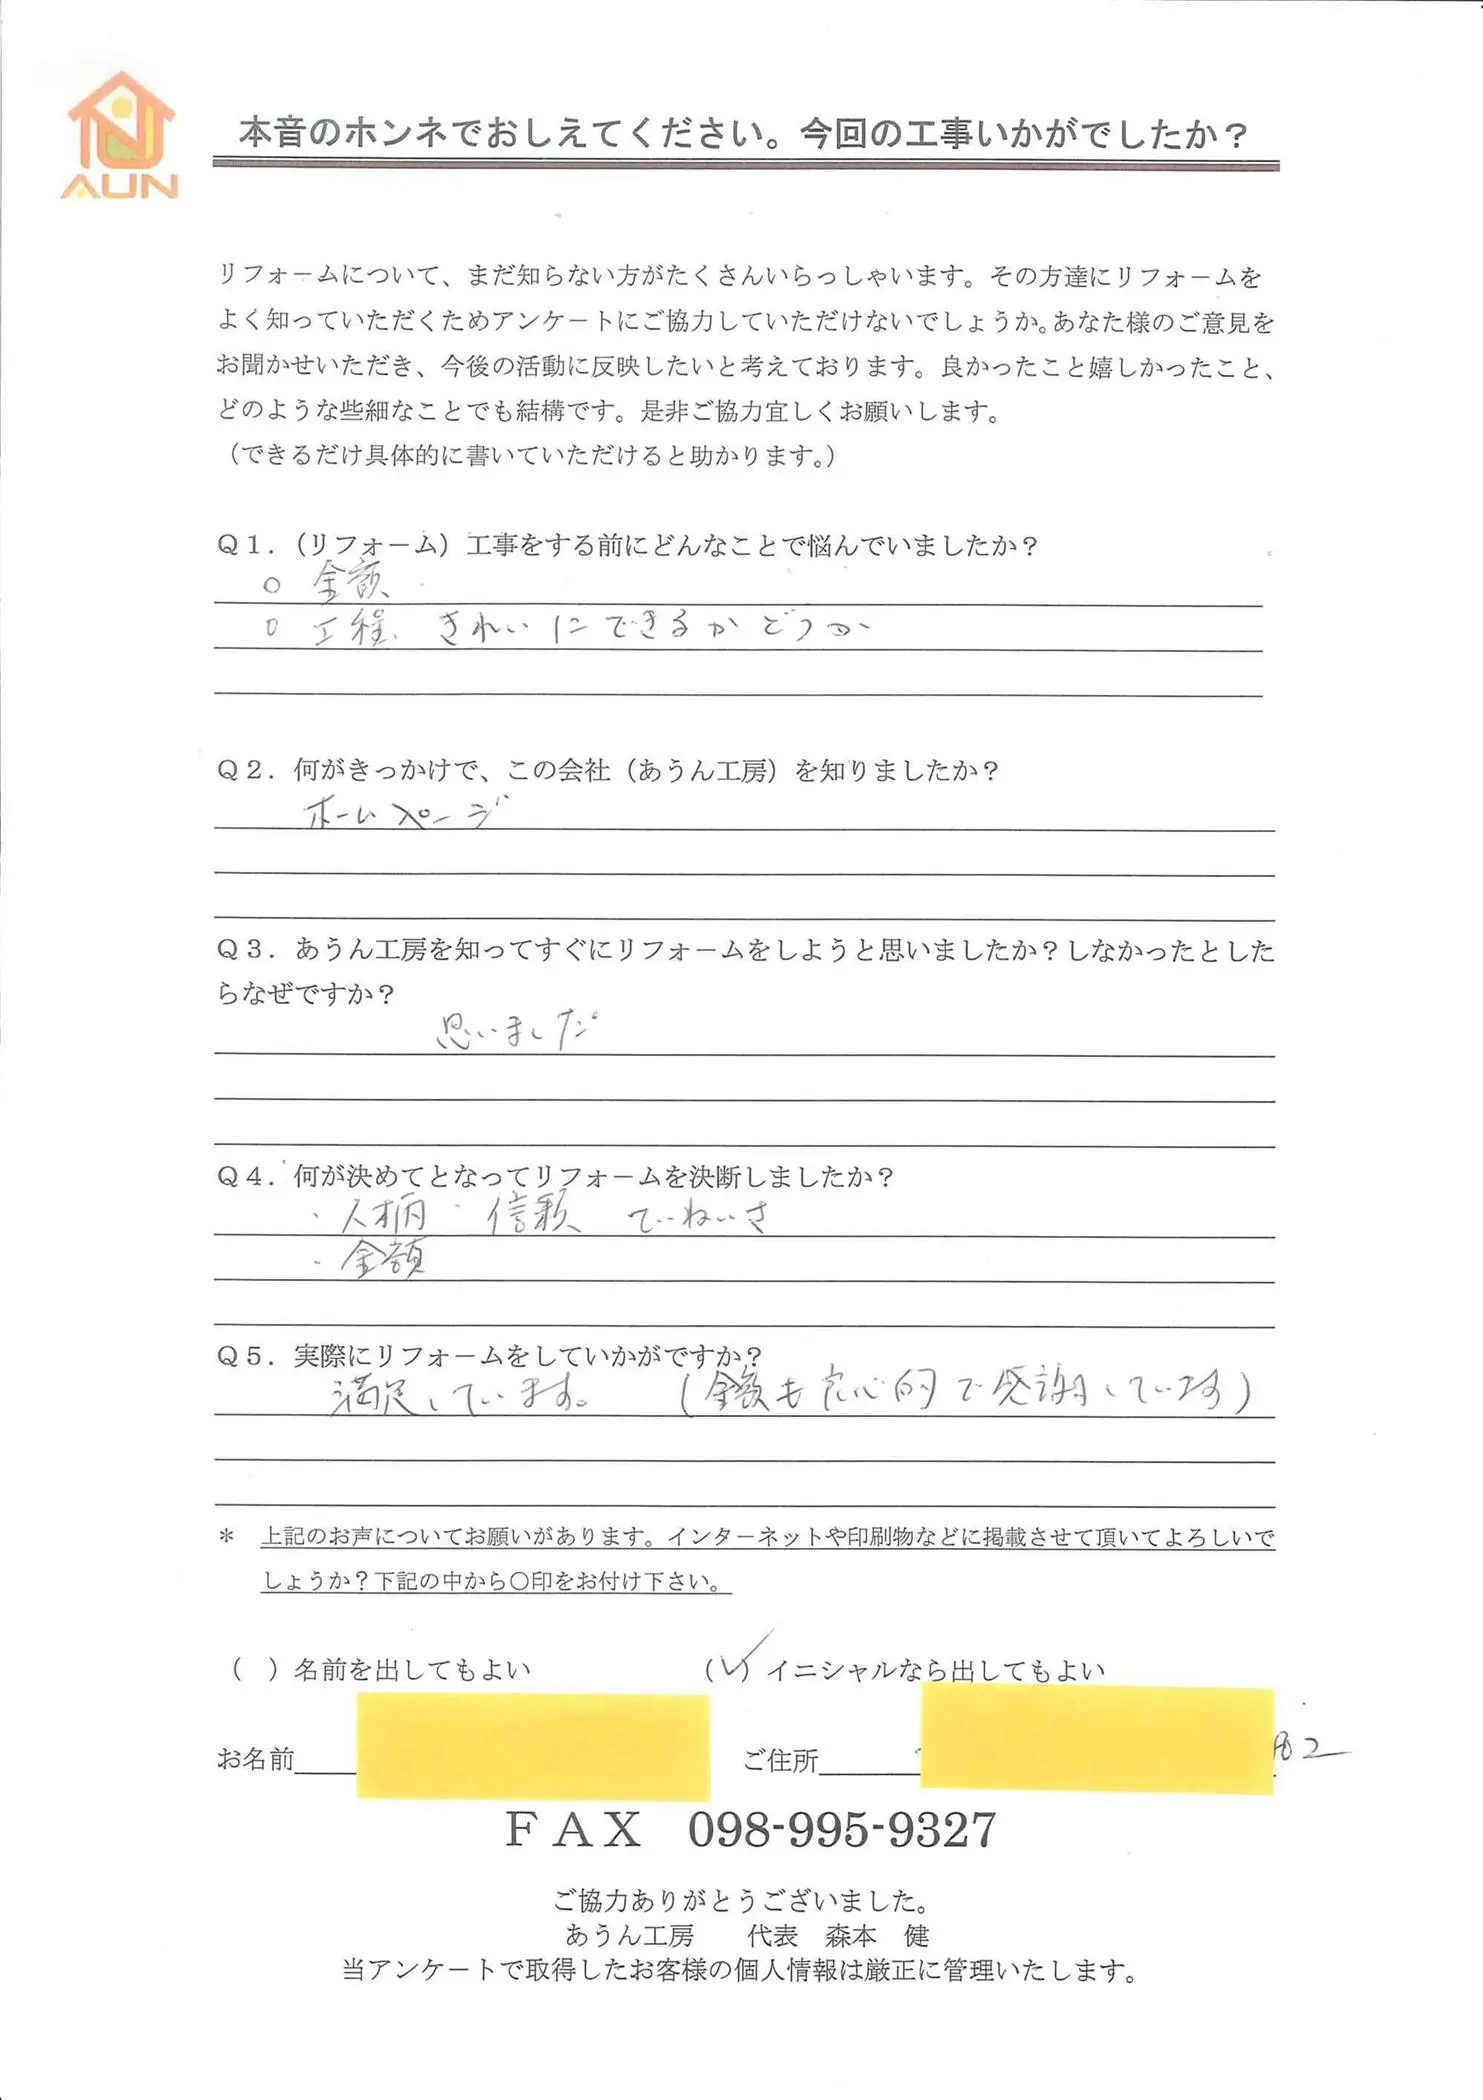 AUN
本音のホンネでおしえてください。今回の工事いかがでしたか？
リフォームについて、まだ知らない方がたくさんいらっしゃいます。その方達にリフォームを
よく知っていただくためアンケートにご協力していただけないでしょうか。あなた様のご意見を
お聞かせいただき、今後の活動に反映したいと考えております。良かったこと嬉しかったこと、
どのような些細なことでも結構です。是非ご協力宜しくお願いします。
（できるだけ具体的に書いていただけると助かります。）
Ｑ１．（リフォーム）工事をする前にどんなことで悩んでいましたか？
○ 金額
○ 工程、きれいにできるかどうか
Ｑ２．何がきっかけで、この会社（あうん工房）を知りましたか？
ホームページ
Ｑ３．あうん工房を知ってすぐにリフォームをしようと思いましたか？しなかったとした
らなぜですか？
思いました
Ｑ４．何が決めてとなってリフォームを決断しましたか？
・人柄 ・信頼 ていねいさ
・金額
Ｑ５．実際にリフォームをしていかがですか？
満足しています。 （金額も良心的で感謝しています）
＊ 上記のお声についてお願いがあります。インターネットや印刷物などに掲載させて頂いてよろしいで
しょうか？下記の中から〇印をお付け下さい。
（ ）名前を出してもよい （✓）イニシャルなら出してもよい
お名前 ご住所 02
ＦＡＸ 098-995-9327
ご協力ありがとうございました。
あうん工房 代表 森本 健
当アンケートで取得したお客様の個人情報は厳正に管理いたします。